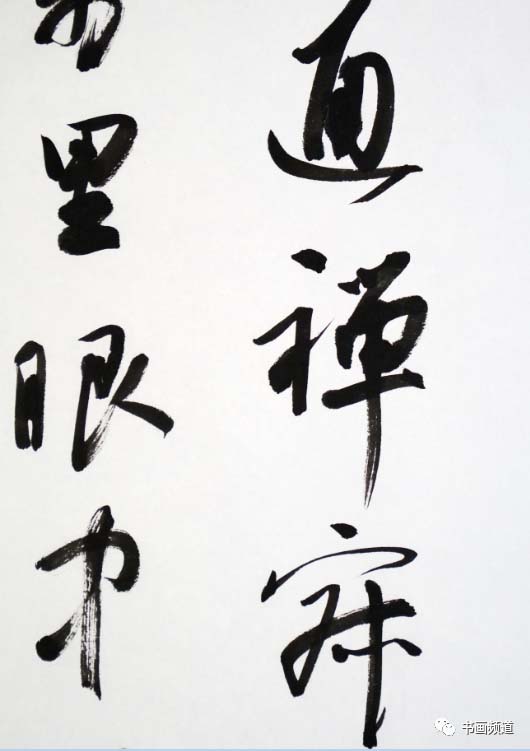 通禅寂
里眼中
书画频道